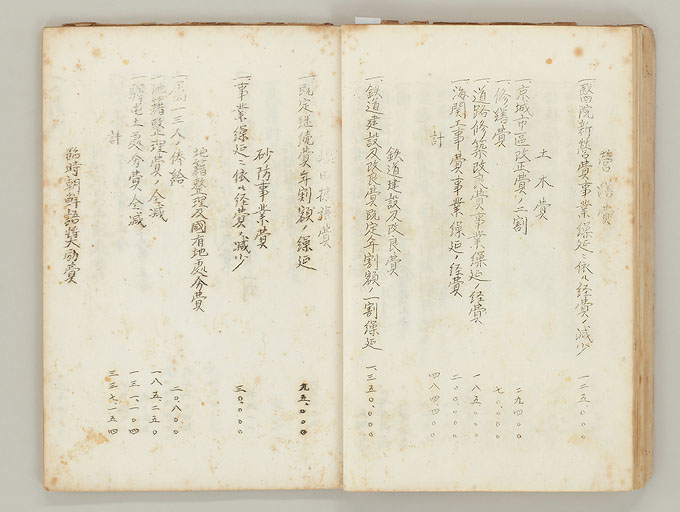 營繕費
一、醫院新營費事業繰延ニ依ル経費ノ減少 一二五、〇〇〇
土木費
一、京城市區改正費ノ二割 二九、四〇〇
一、修繕費 七〇、〇〇〇
一、道路修築改良費事業繰延ノ経費 一八五、〇〇〇
一、海関工事費事業繰延ノ経費 二〇〇、〇〇〇
計 四八四、四〇〇
鉄道建設及改良費
一、鉄道建設及改良費既定年割額ノ一割繰延 一、三五〇、〇〇〇
費
一、既定継続費年割額ノ繰延 九五、〇〇〇
砂防事業費
一、事業繰延ニ依ル経費ノ減少 三〇、〇〇〇
地籍整理及國有地處分費
一、属一三人ノ俸給 二〇、八〇〇
一、地籍整理費ノ全減 一八五、二五〇
一、驛屯土處分費ノ全減 一三一、一〇四
計 三三七、一五四
臨時朝鮮語奬励費